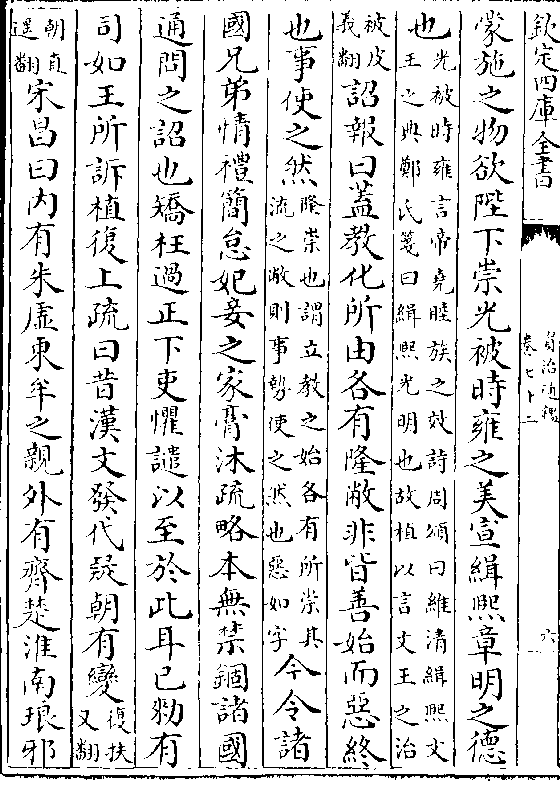 欽定四庫全書
資治通鑑
卷七十二
六
蒙施之物欲陛下崇光被時雍之美宣緝熙章明之德
也光被時雍言帝堯睦族之效詩周頌曰維清緝熙文
王之典鄭氏箋曰緝熙光明也故植以言文王之治
被皮
義翻詔報曰蓋教化所由各有隆敝非皆善始而惡終
也事使之然隆崇也謂立教之始各有所崇其
流之敝則事勢使之然也惡如字今令諸
國兄弟情禮簡怠妃妾之家膏沐疏略本無禁錮諸國
通問之詔也矯枉過正下吏懼譴以至於此耳已勑有
司如王所訴植復上疏曰昔漢文發代疑朝有變復扶
又翻
朝直
遥翻宋昌曰内有朱虚東牟之親外有齊楚淮南琅邪